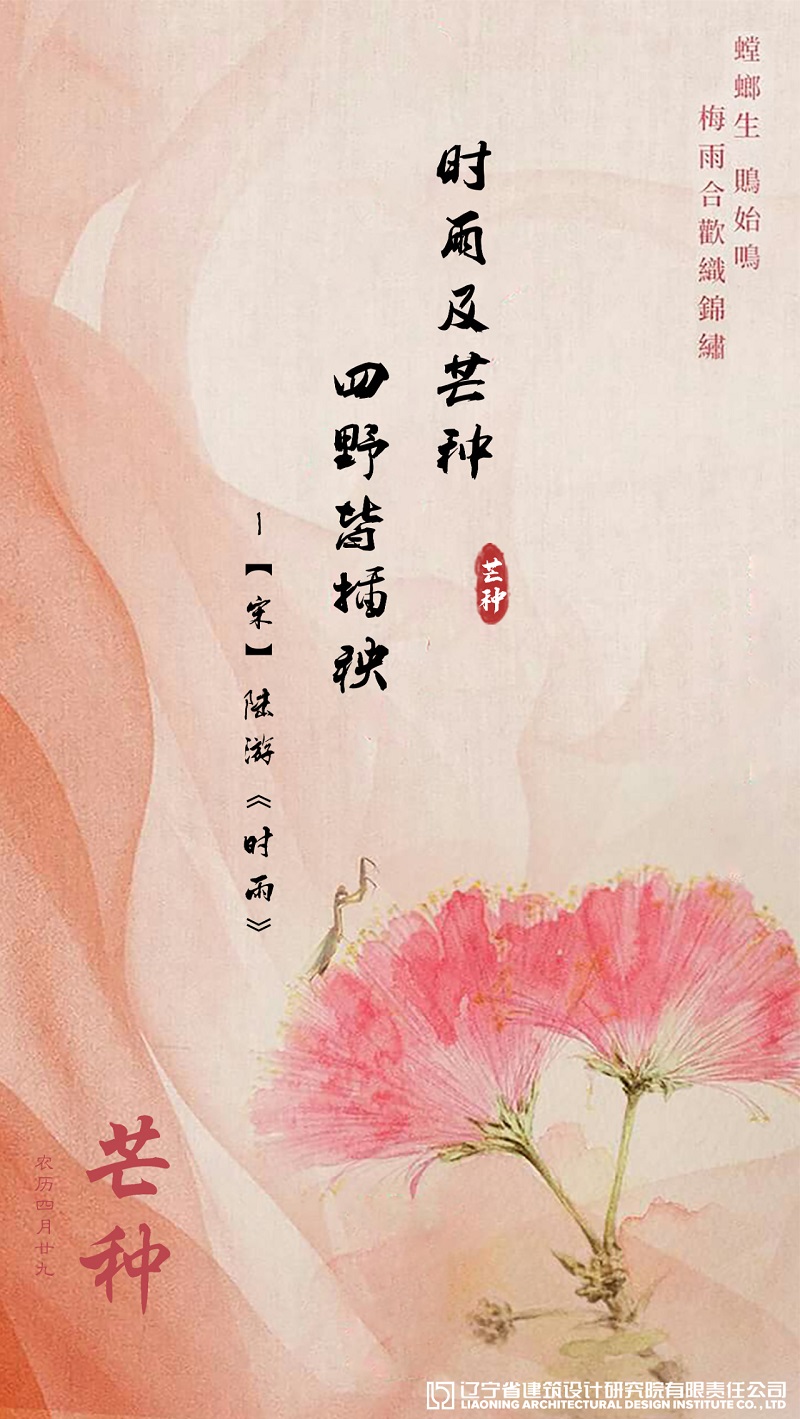 螳螂生 鵙始鳴
梅雨合歡織錦繡
时雨及芒种
四野皆插秧
—【宋】陆游《时雨》
芒种
芒种
农历四月廿九
辽宁省建筑设计研究院有限责任公司
LIAONING ARCHITECTURAL DESIGN INSTITUTE CO., LTD